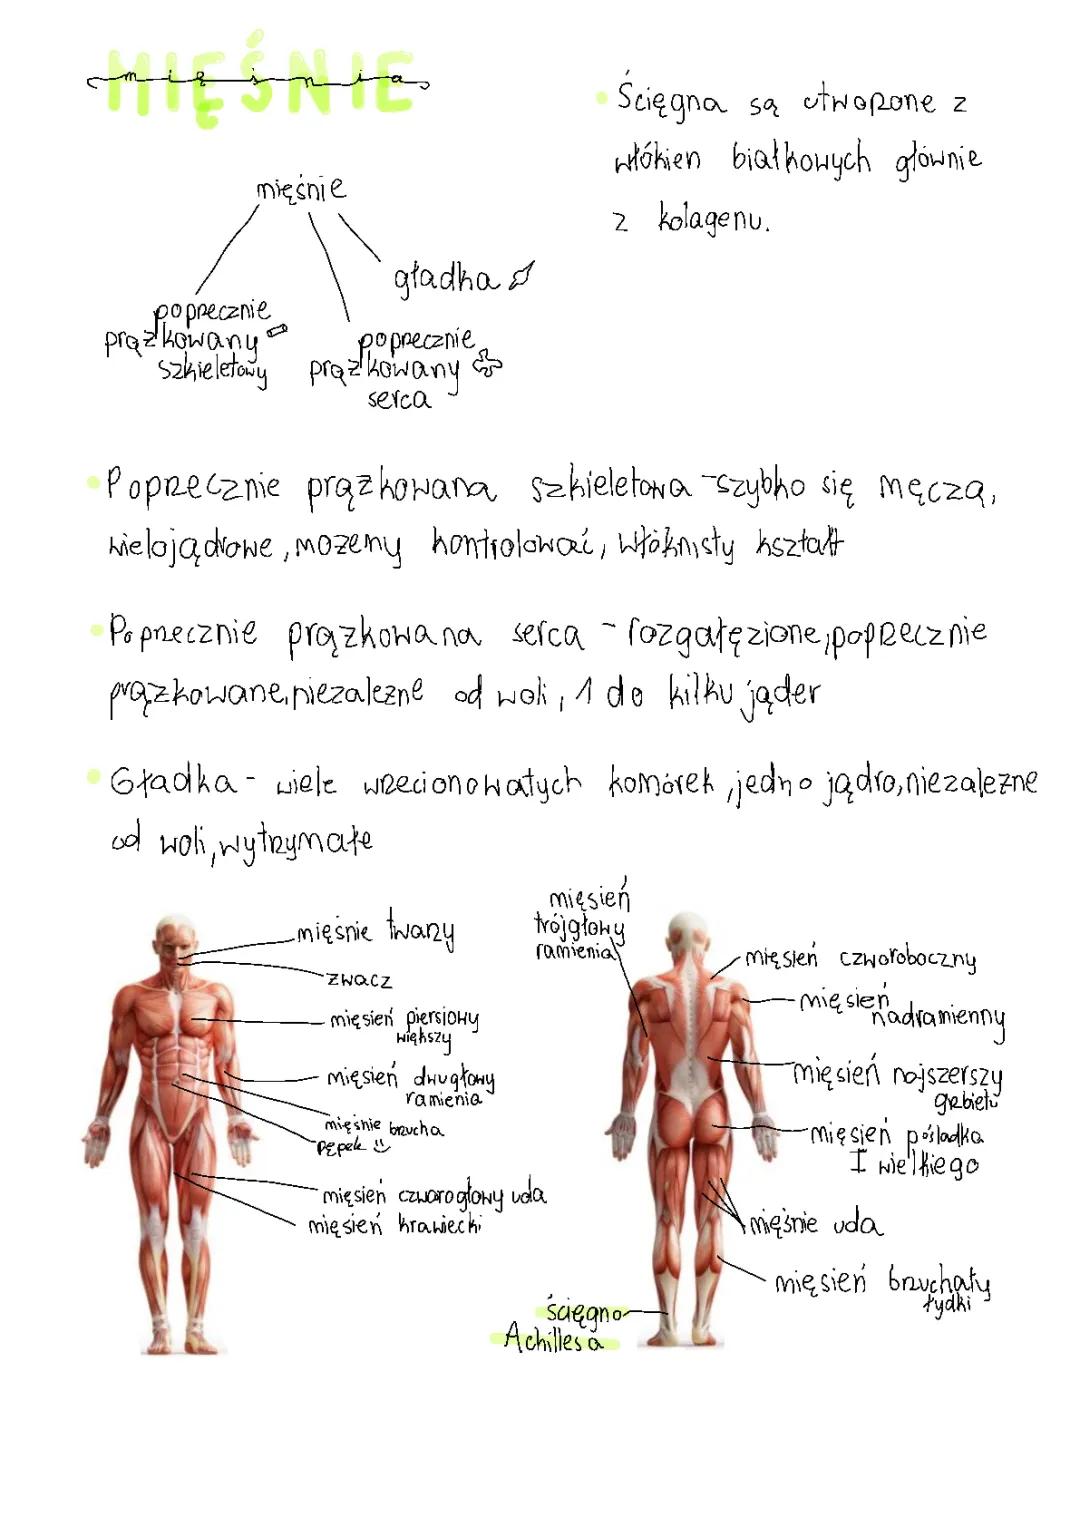 MIĘŚNIE
mięśnia
Ścięgna są utworzone z
włókien białkowych głównie
z kolagenu.
mięśnie
gładka
poprzecznie
prążkowany
szkieletowy
poprzecznie
prążkowany
serca
Poprzecznie prążkowana szkieletowa - szybko się męczą,
wielojądrowe, możemy kontrolować, włóknisty kształt
Poprzecznie prążkowana serca - rozgałęzione, poprzecznie
prążkowane, niezależne od woli, 1 do kilku jąder
Gładka - wiele wrzecionowatych komórek, jedno jądro, niezależne
od woli, wytrzymałe
mięśnie twarzy
żwacz
mięsień piersiowy
większy
mięsień dwugłowy
ramienia
mięśnie brzucha
pępek
mięsień czworogłowy uda
mięsień krawiecki
mięsień
trójgłowy
ramienia
mięsień czworoboczny
mięsień
nadramienny
mięsień najszerszy
grzbietu
mięsień pośladka
I wielkiego
mięśnie uda
mięsień brzuchaty
łydki
ścięgno
Achillesa